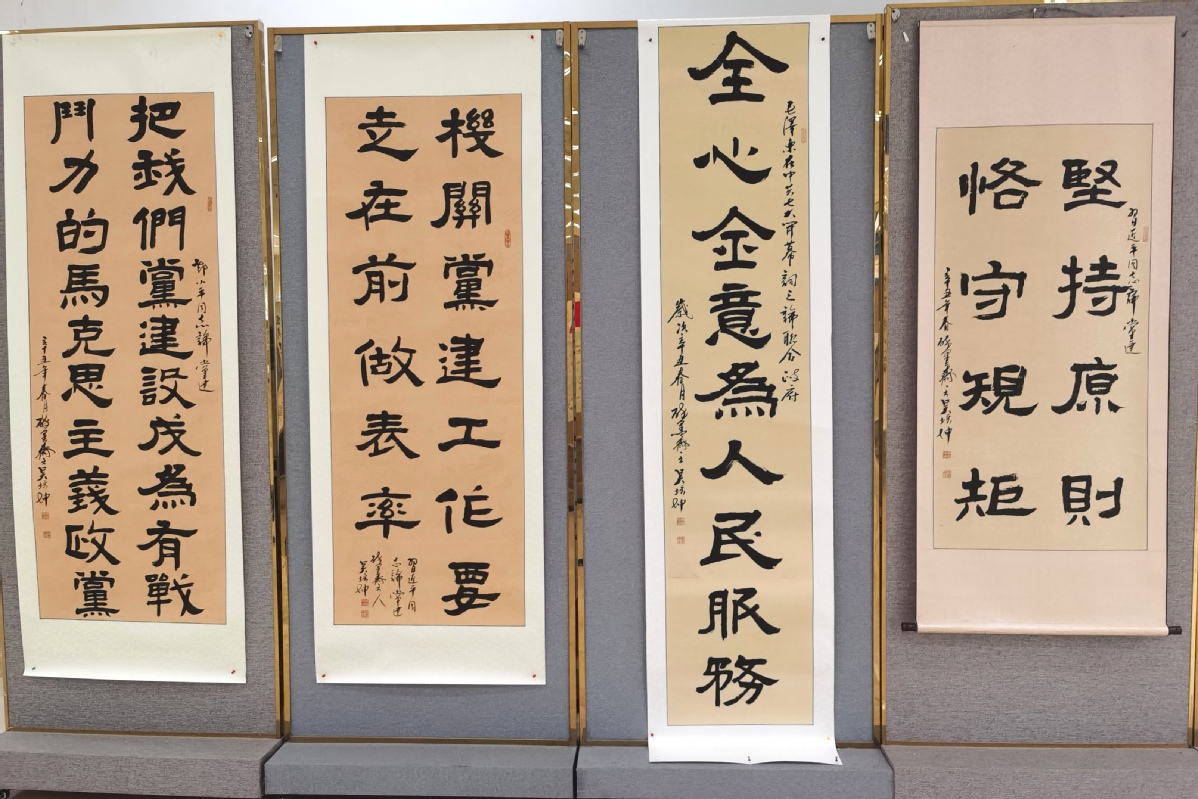 把我們黨建設成為有戰
鬥力的馬克思主義政黨
鄧小平同志論黨建
辛丑年春月
機關黨建工作要
走在前做表率
習近平同
志論黨建
全心全意為人民服務
毛澤東在中共七大開幕詞之論聯合政府
歲次辛丑春月
堅持原則
恪守規矩
習近平同志論黨建
辛丑年春